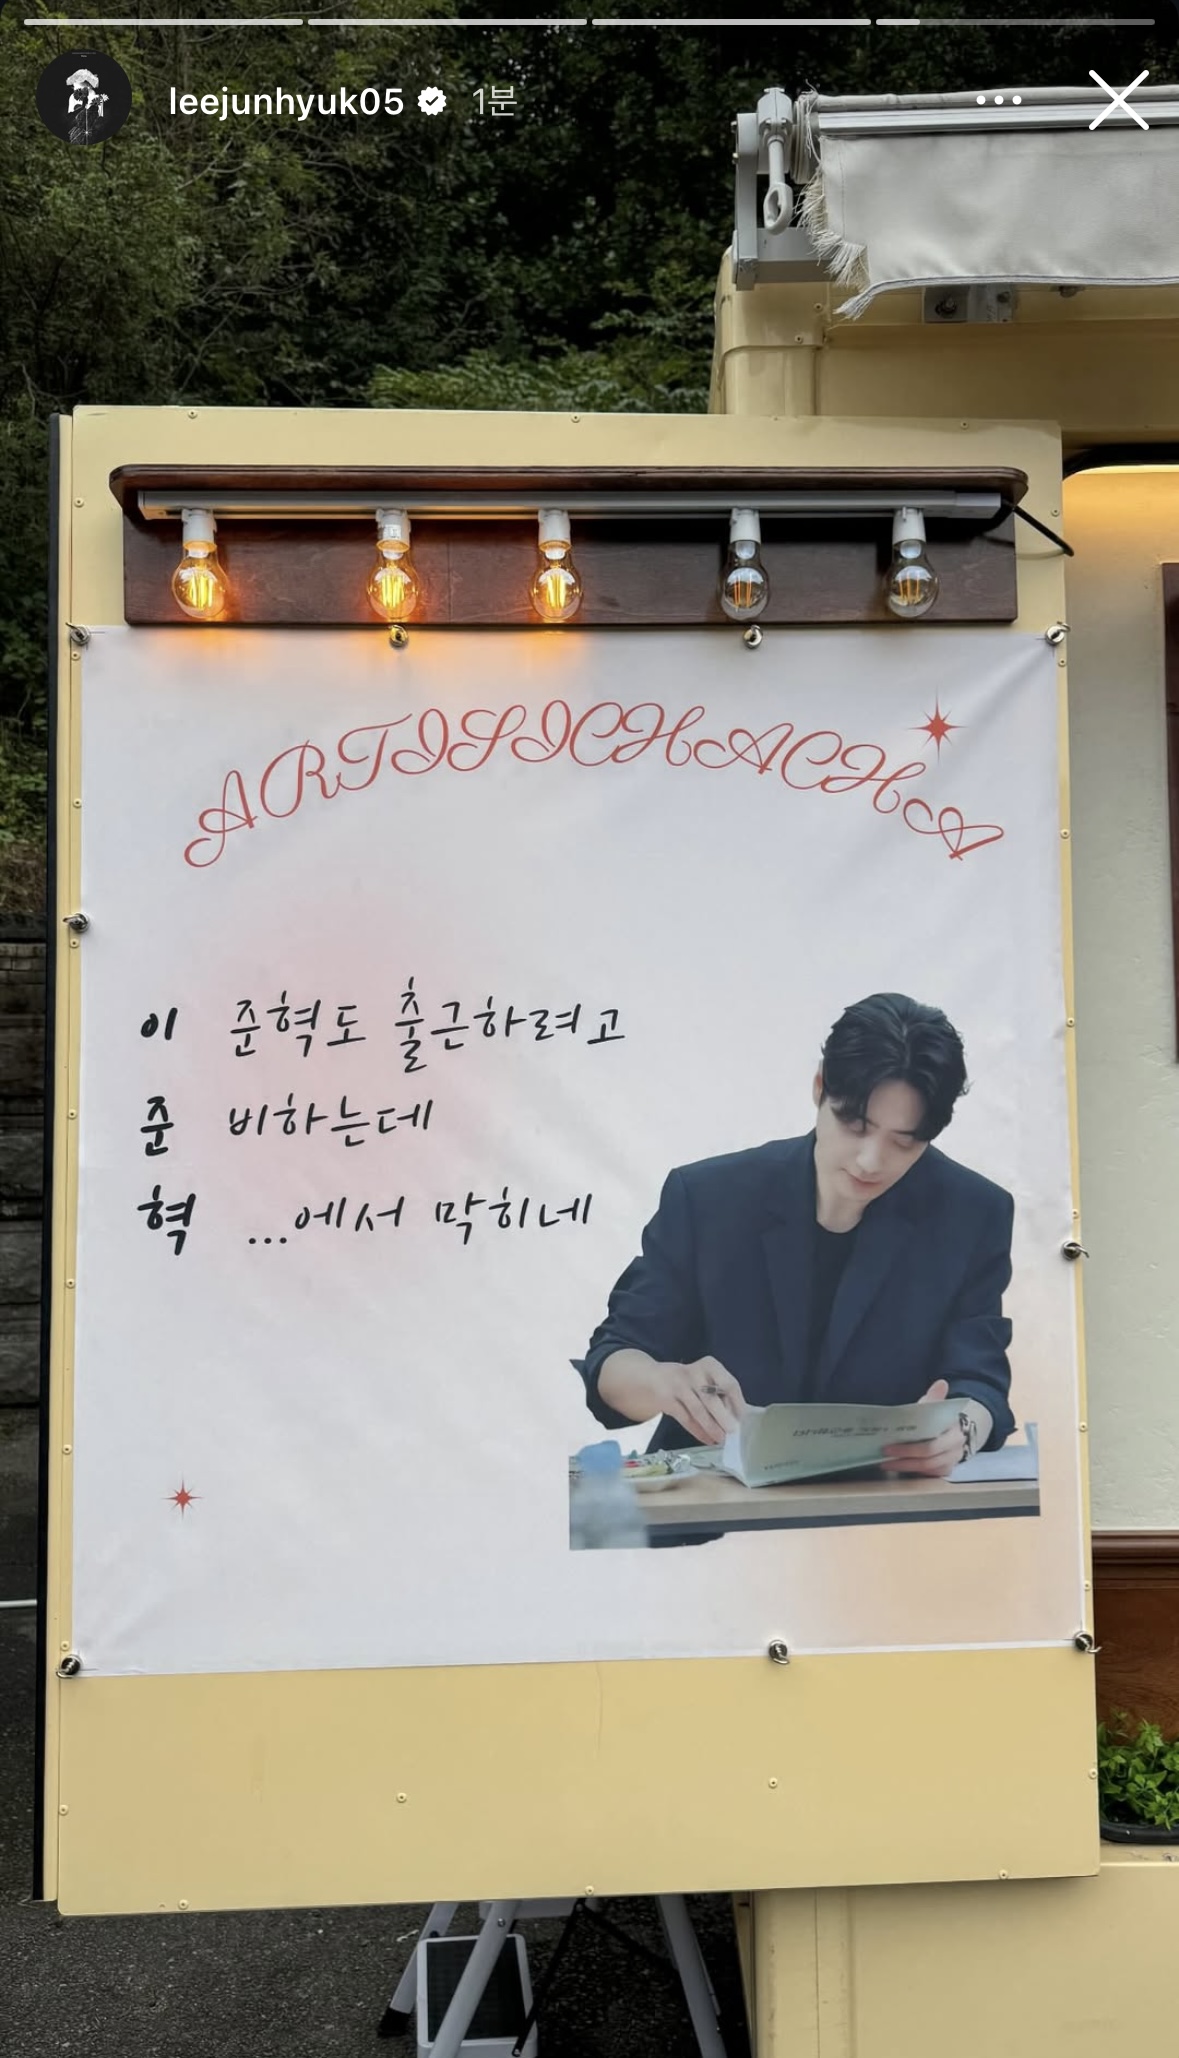 leejunhyuk05 1분
ARTISICHACHA
이 준혁도 출근하려고
준 비하는데
혁 ...에서 막히네